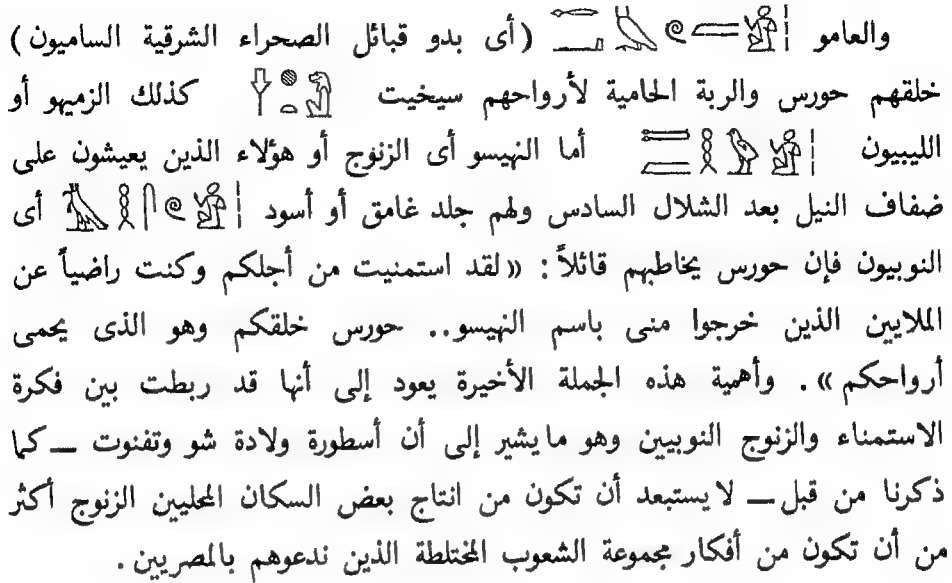 والعامو (أى بدو قبائل الصحراء الشرقية الساميون)
خلقهم حورس والربة الحامية لأرواحهم سيخيت كذلك الزميهو أو
الليبيون أما النهيسو أى الزنوج أو هؤلاء الذين يعيشون على
ضفاف النيل بعد الشلال السادس ولهم جلد غامق أو أسود أى
النوبيون فإن حورس يخاطبهم قائلاً : «لقد استمنيت من أجلكم وكنت راضياً عن
الملايين الذين خرجوا منى باسم النهيسو.. حورس خلقكم وهو الذى يحمى
أرواحكم» . وأهمية هذه الجملة الأخيرة يعود إلى أنها قد ربطت بين فكرة
الاستمناء والزنوج النوبيين وهو مايشير إلى أن أسطورة ولادة شو وتفنوت ــ كما
ذكرنا من قبل ــ لايستبعد أن تكون من انتاج بعض السكان المحليين الزنوج أكثر
من أن تكون من أفكار مجموعة الشعوب المختلطة الذين ندعوهم بالمصريين .